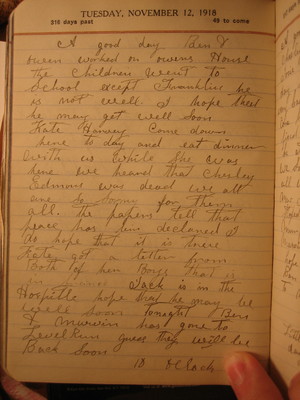 TUESDAY, NOVEMBER 12, 1918
316 days past 49 to come
A good day Ben &
owen worked on owens House
the Children went to
School except Franklin he
is not well I hope that
he may get well soon.
Kate Harvey Come down
here to day and eat dinner
with us while she was
here we heard that Charley
was dead we all
are so sorry for them
all. the papers tell that
peace has been declared I
do hope that it is true
Kate got a letter from
Both of her Boys that is
in France Jack is in the
Hospitle hope that he may be
well soon tonight Ben
& Marvin has gone to
Level Run guess they will be
Back soon
10 O Clock